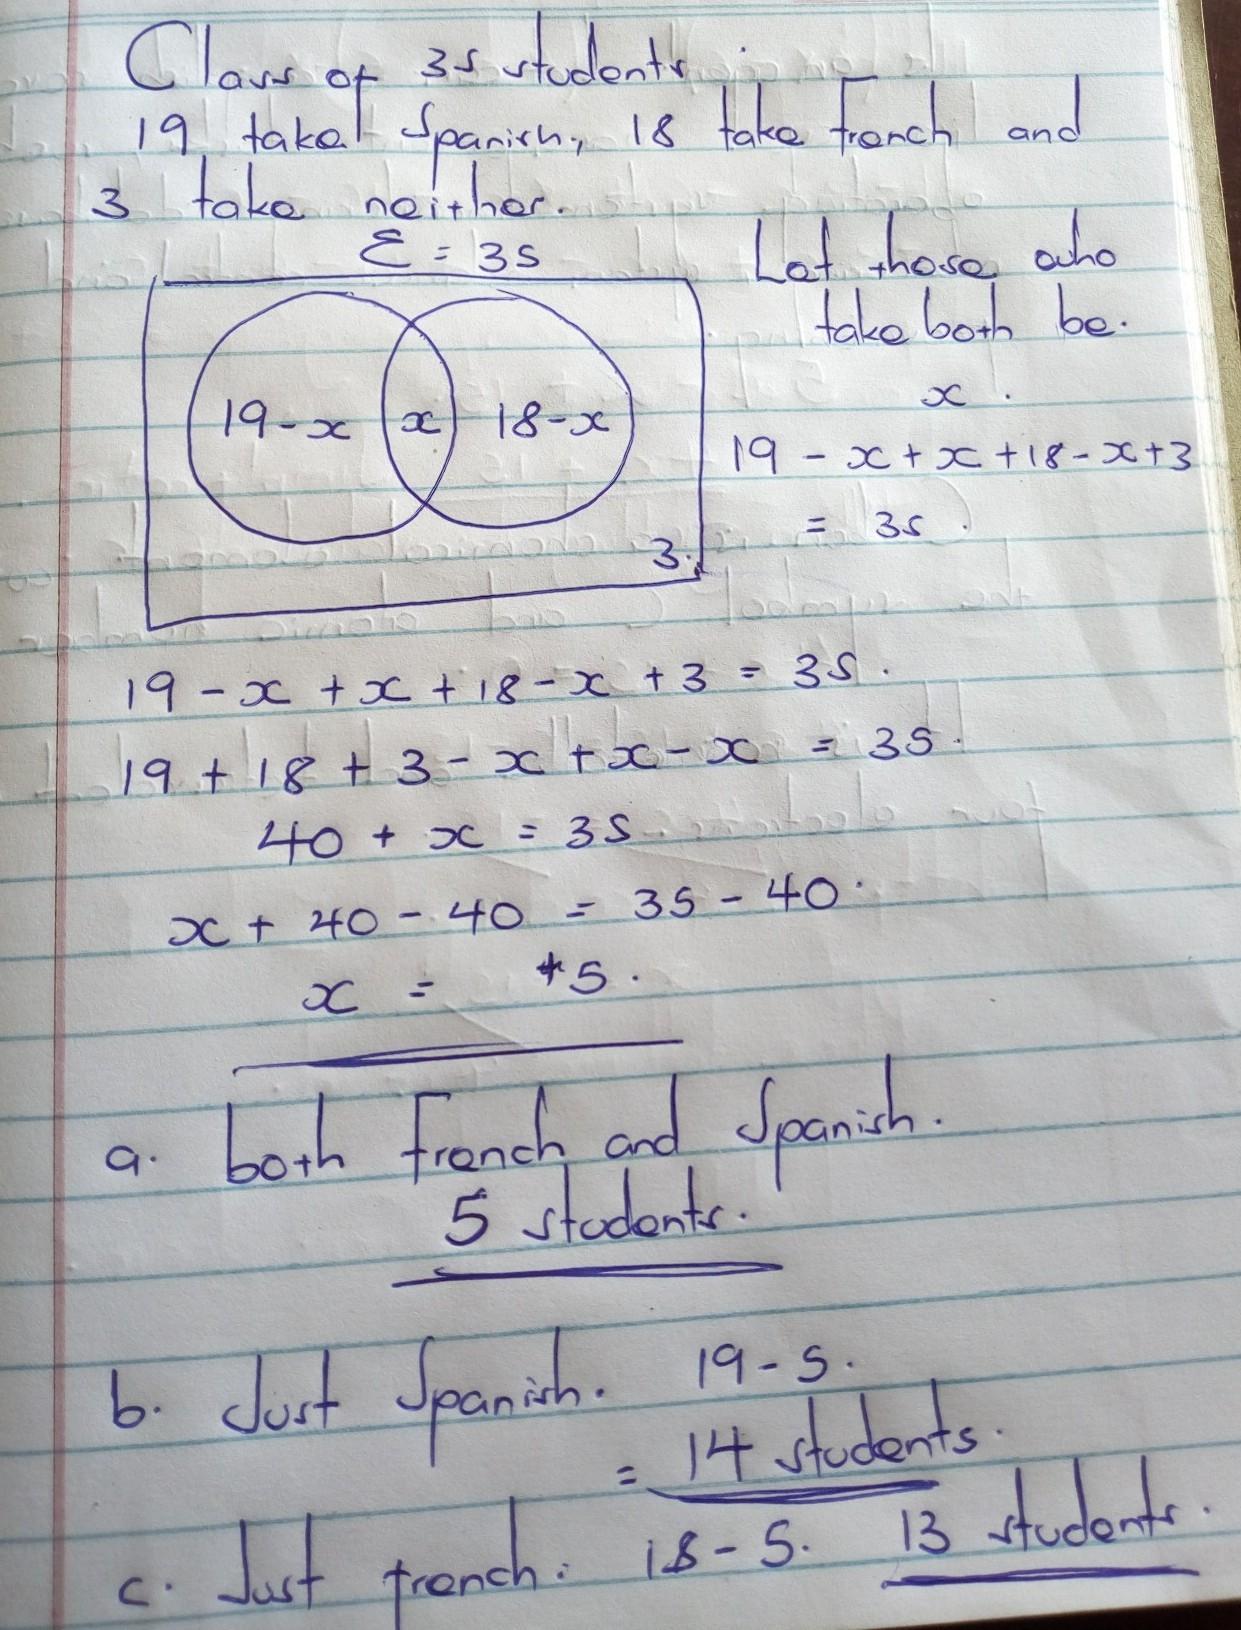 Class of 35 students
19 take Spanish, 18 take french and
3 take neither.
ℰ = 35
Let those who
take both be.
x.
19-x
x
18-x
3.
19 - x + x + 18 - x + 3
= 35.
19 - x + x + 18 - x + 3 = 35.
19 + 18 + 3 - x + x - x = 35.
40 + x = 35
x + 40 - 40 = 35 - 40.
x = +5.
a. both french and Spanish.
5 students.
b. Just Spanish. 19 - 5.
= 14 students.
c. Just french. 18 - 5. 13 students.